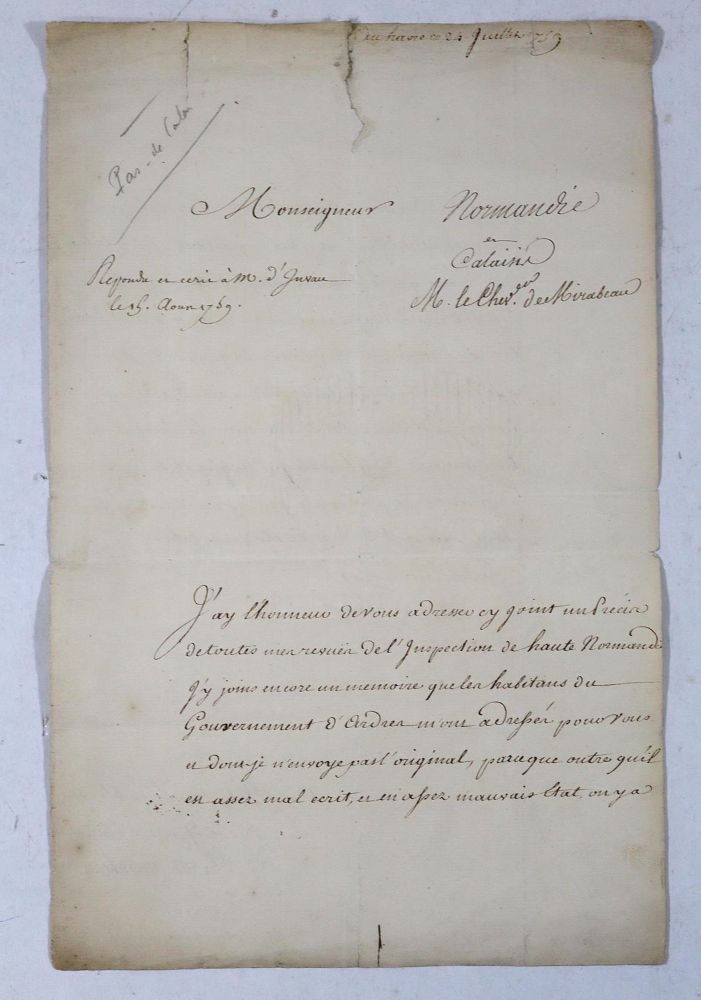 au havre ce 24 Juillet 1759
Pas-de Calais
Monseigneur
Normandie
et
Calaisis
M. le Chev.er de Mirabeau
Repondu et ecrit à M. d'Invau
le 15. Aoust 1759.
J'ay l'honneur de vous adresser cy joint un Précis
de toutes mes revües de l'Inspection de haute Normandie
j'y joins encore un memoire que les habitans du
Gouvernement d'Ardres m'ont adressés pour vous
et dont je n'envoye pas l'original, parceque outre qu'il
est assez mal ecrit, et en assez mauvais Etat, on y a